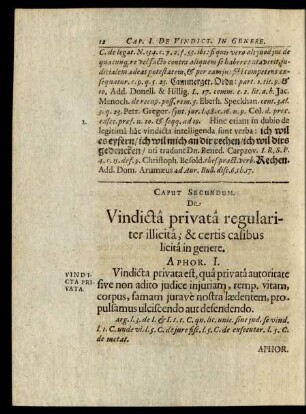 12 CAP. I. DE VINDICT. IN GENERE.
C. de legat. N. 134. c. 7. 2. f. 55. ibi: si quis vero aliquod jus de
quacunq, re vel facto contra aliquem se habere putaverit ju-
dicialem adeat potestatem, & per eam jus sibi competens ex-
sequatur, c. 23. Cammerger. Ordn: part. 2. tit. 9. &
10. Add. Donell. & Hillig. l. 17. comm. c. 2. lit. a. b. Jac.
Menoch. de recop. poss. rem. 9. Eberh. Speckhan. cent.
q. 23. Petr. Gregor. Col. d. proc.
execut. Hinc etiam in dubio de
legitimâ hâc vindictâ intelligenda sunt verba: ich wil
es eyfern / ich wil mich an dir rechen / ich wil dirs
gedencken / uti tradunt Dn. Bened. Carpzov. I. R. S. P.
4. c. 13. def. 9. Christoph. Besold. thes. pract. verb. Rechen.
Add. Dom. Arumæus ad Aur. Bull. disc. 6. th. 17.
CAPUT SECUNDUM.
DE
Vindictâ privatâ regulari-
ter illicitâ; & certis casibus
licitâ in genere.
APHOR. I.
VINDI-
CTA PRI-
VATA.
Vindicta privata est, quâ privatâ autoritate
sive non adito judice injuriam, remp. vitam,
corpus, famam jurave nostra lædentem, pro-
pulsamus ulciscendo aut defendendo.
arg. l. 3. de I. & I. l. 1. C. qu. lic. unic. sine jud. se vind.
l. 1. C. unde vi. l. 5. C. de jure fisc. l. 5. C. de exsecutor. l. 5. C.
de metat.
APHOR.